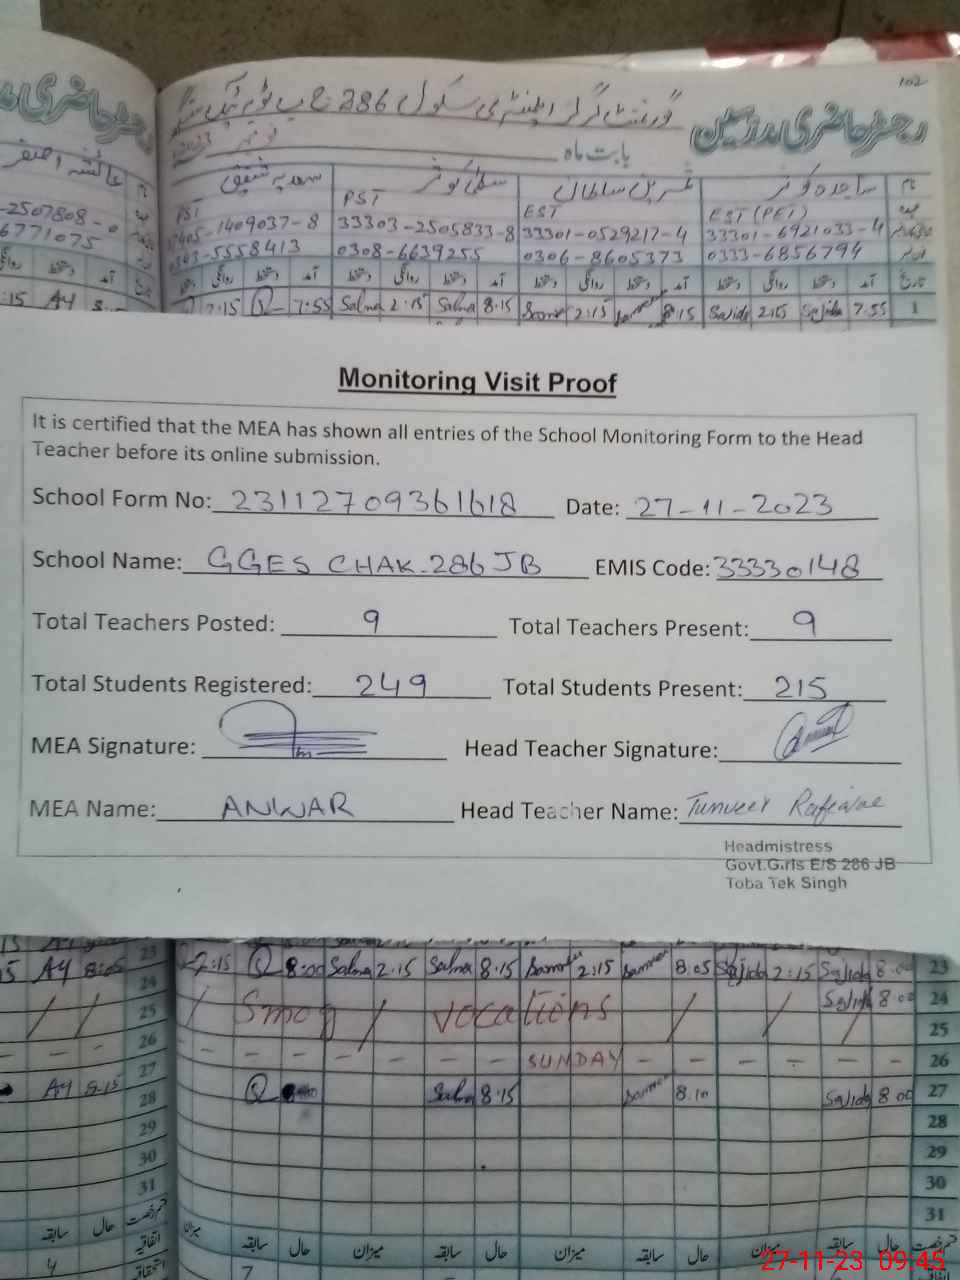 102
گورنمنٹ گرلز ایلیمنٹری سکول 286 ج ب ٹوبہ ٹیک سنگھ
رجسٹر حاضری مدرسین
بابت ماہ نومبر 2023
نام ساجدہ کوثر ثمرین سلطان سلمیٰ کوثر سعدیہ شفیق
عہدہ EST (PET) EST PST PST
33301-6921033-4 33301-0529217-4 33303-2505833-8 1409037-8
0333-6856794 0306-8605373 0308-6639255 5558413
عائشہ اصغر
2507808-0
6771075
تاریخ آمد دستخط روانگی دستخط آمد دستخط روانگی دستخط آمد دستخط روانگی دستخط آمد دستخط روانگی
1 7.55 Sajida 2.15 Sajida 8.15 2.15 8.15 Salma 2.15 Salma 7.55 2.15
Monitoring Visit Proof
It is certified that the MEA has shown all entries of the School Monitoring Form to the Head
Teacher before its online submission.
School Form No: 23112709361618 Date: 27-11-2023
School Name: GGES CHAK-286 JB EMIS Code: 33330148
Total Teachers Posted: 9 Total Teachers Present: 9
Total Students Registered: 249 Total Students Present: 215
MEA Signature: Head Teacher Signature:
MEA Name: ANWAR Head Teacher Name: Tunveer
Headmistress
Govt.Girls E/S 286 JB
Toba Tek Singh
AY 8:05 2:15 8:00 Salma 2.15 Salma 8.15 2:15 8.05 Sajida 2:15 Sajida 8.00 23
Sajida 8 00 24
Smog vocations 25
SUNDAY 26
AY 8.15 Salma 8.15 8.10 Sajida 8 00 27
28
29
30
31
سابقہ حال میزان سابقہ حال میزان سابقہ حال میزان سابقہ حال قسم رخصت
اتفاقیہ
27-11-23 09:45